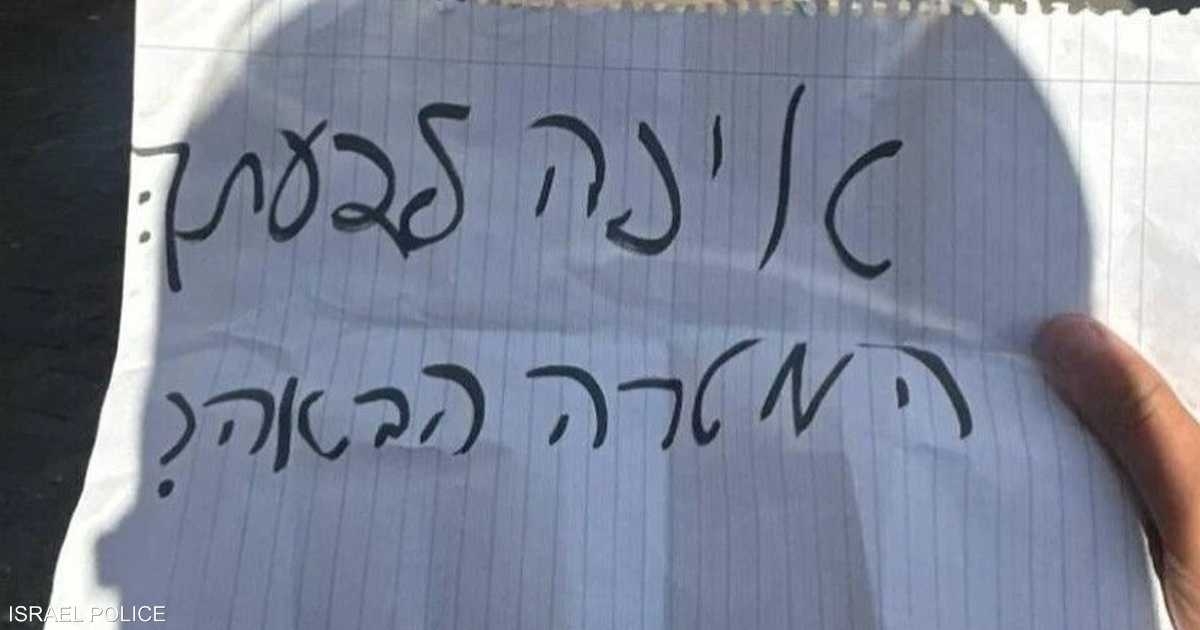 אינה לדעתך:
המטרה הבאה?
ISRAEL POLICE